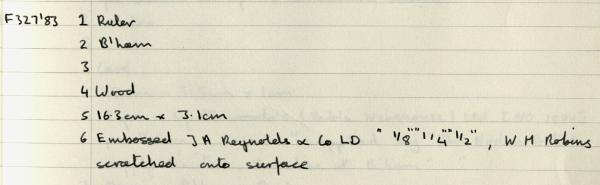 F327'83 1 Ruler
2 B'ham
3
4 Wood
5 16.3cm x 3.1cm
6 Embossed J A Reynolds & Co LD " 1/8" "1/4" "1/2", W H Robins
scratched onto surface